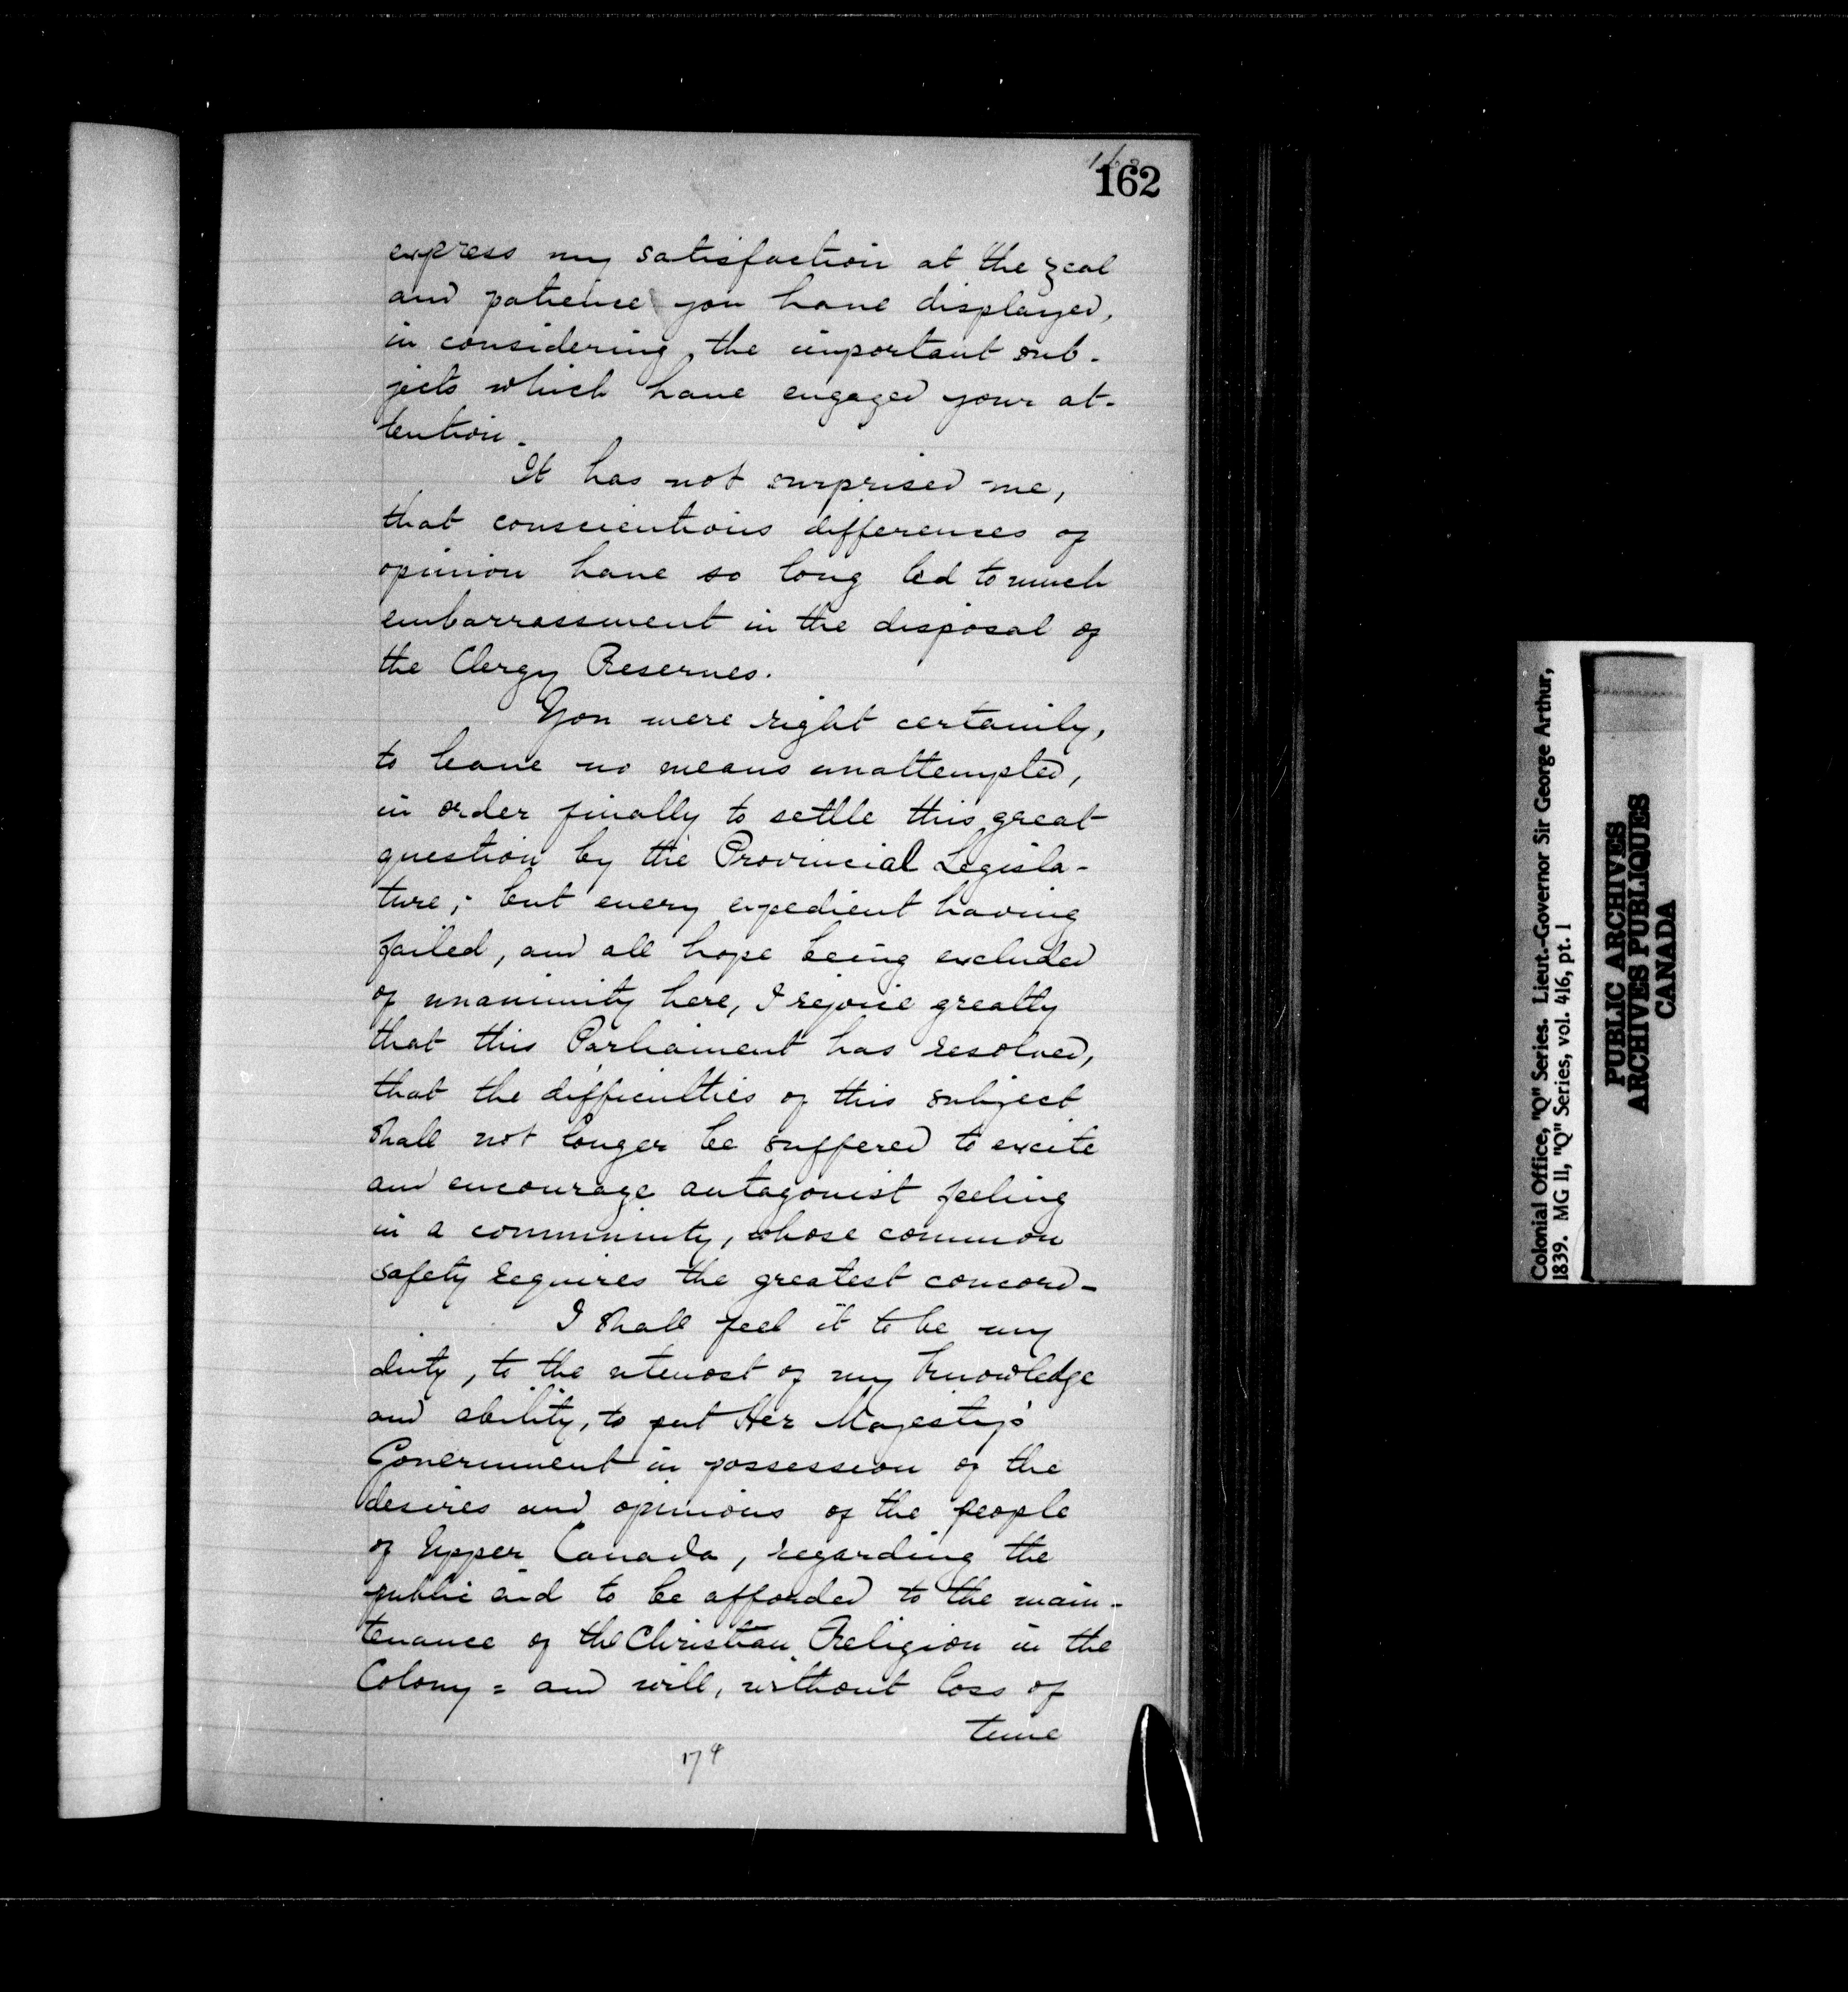 162
express my satisfaction at the zeal
and patience you have displayed,
in considering the important sub-
jects which have engaged your at-
tention.
It has not surprised me,
that conscientious differences of
opinion have so long led to much
embarrassment in the disposal of
the Clergy Reserves.
You were right certainly,
to leave no means unattempted,
in order finally to settle this great
question by the Provincial Legisla-
ture; but every expedient having
failed, and all hope being excluded
of unanimity here, I rejoice greatly
that this Parliament has resolved,
that the difficulties of this subject
shall not longer be suffered to excite
and encourage antagonist feeling
in a community, whose common
safety requires the greatest concord-
I shall feel it to be my
duty, to the utmost of my knowledge
and ability, to put Her Majesty's
Government in possession of the
desires and opinions of the people
of Upper Canada, regarding the
public aid to be afforded to the main-
tenance of the Christian Religion in the
Colony = and will, without loss of
time
174
Colonial Office, "Q" Series. Lieut.-Governor Sir George Arthur,
1839. MG 11, "Q" Series, vol. 416, pt. 1
PUBLIC ARCHIVES
ARCHIVES PUBLIQUES
CANADA